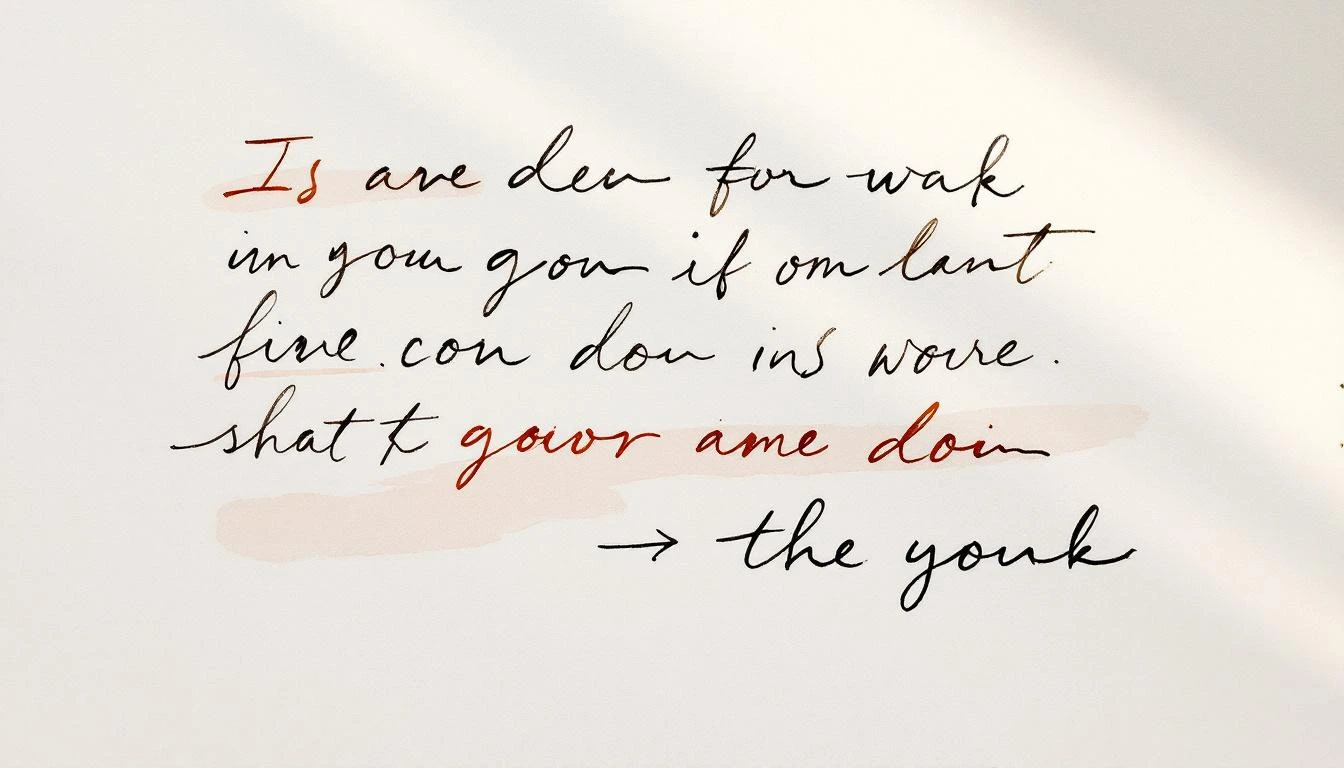 Is are den for wak
im your gou if om lant
fine. con dou ins wowe.
shat t gowor ame doin
→ the yourk